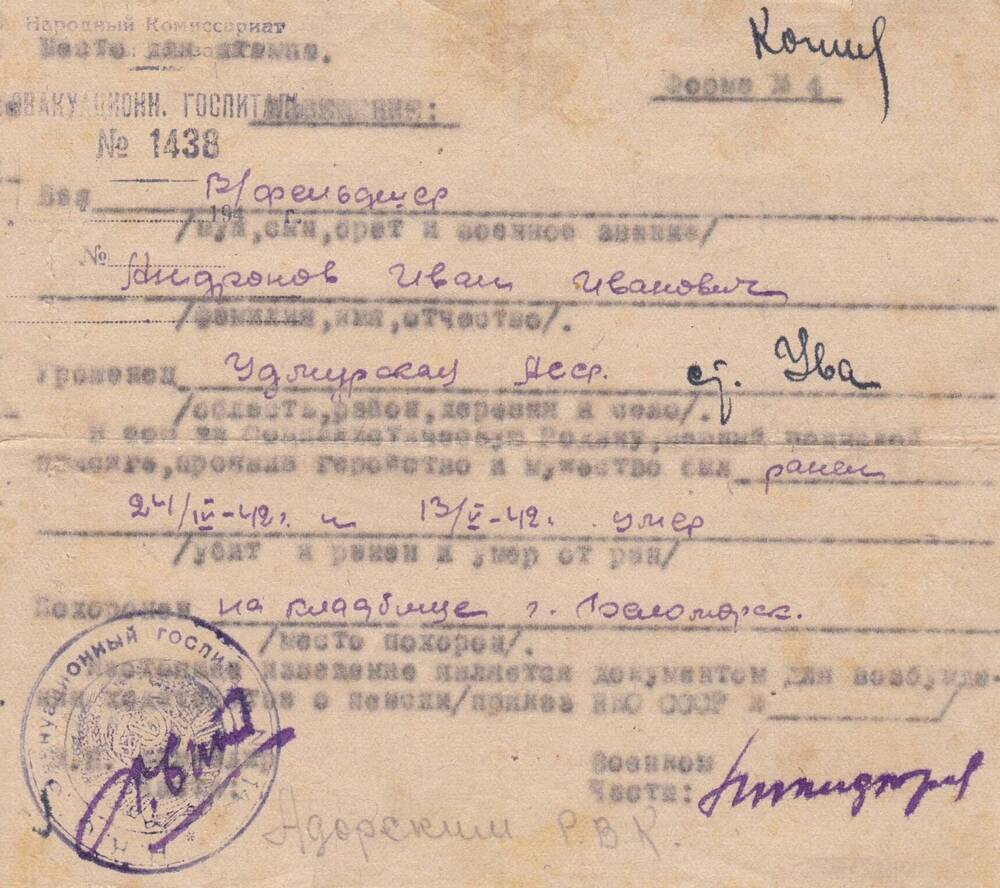 Народный Комиссариат
Место для штампа.
Копия
Форма № 4
ЭВАКУАЦИОНН. ГОСПИТАЛЬ
ИЗВЕЩЕНИЕ:
№ 1438
Ваш В/фельдшер
194 г.
/муж, сын, брат и военное звание/
№
Андронов Иван Иванович
/фамилия, имя, отчество/.
Уроженец Удмурская Асср. ст. Ува
/область, район, деревни и село/.
В бою за Социалистическую Родину, верный воинской
присяге, проявив геройство и мужество был ранен
24/IV-42г. и 13/V-42г. умер
/убит и ранен и умер от ран/
Похоронен на кладбище г. Беломорск.
/место похорон/.
Настоящее извещение является документом для возбужде-
ния ходатайства о пенсии/приказ НКО СССР №
ЭВАКУАЦИОННЫЙ ГОСПИТАЛЬ
Н К
Военком
Части:
Р.В.К.